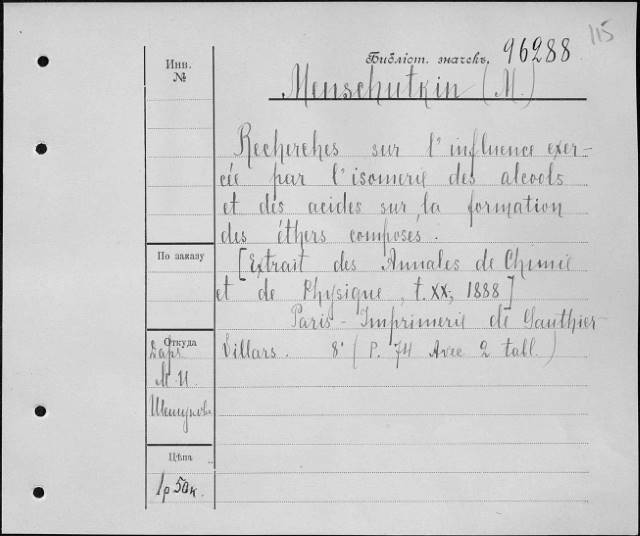 115
Библіот. значекъ. 96288
Инв.
№
Menschutkin (M.)
Recherches sur l'influence exer-
cée par l'isomerie des alcools
et des acides sur la formation
des éthers composés.
По заказу
[Extrait des Annales de Chimie
et de Physique, t. XX, 1888]
Paris - Imprimerie de Gauthier-
Откуда
Villars. 8° (P. 74 Avec 2 tabl.)
Даръ
М. И.
Цѣна
1р 50к.